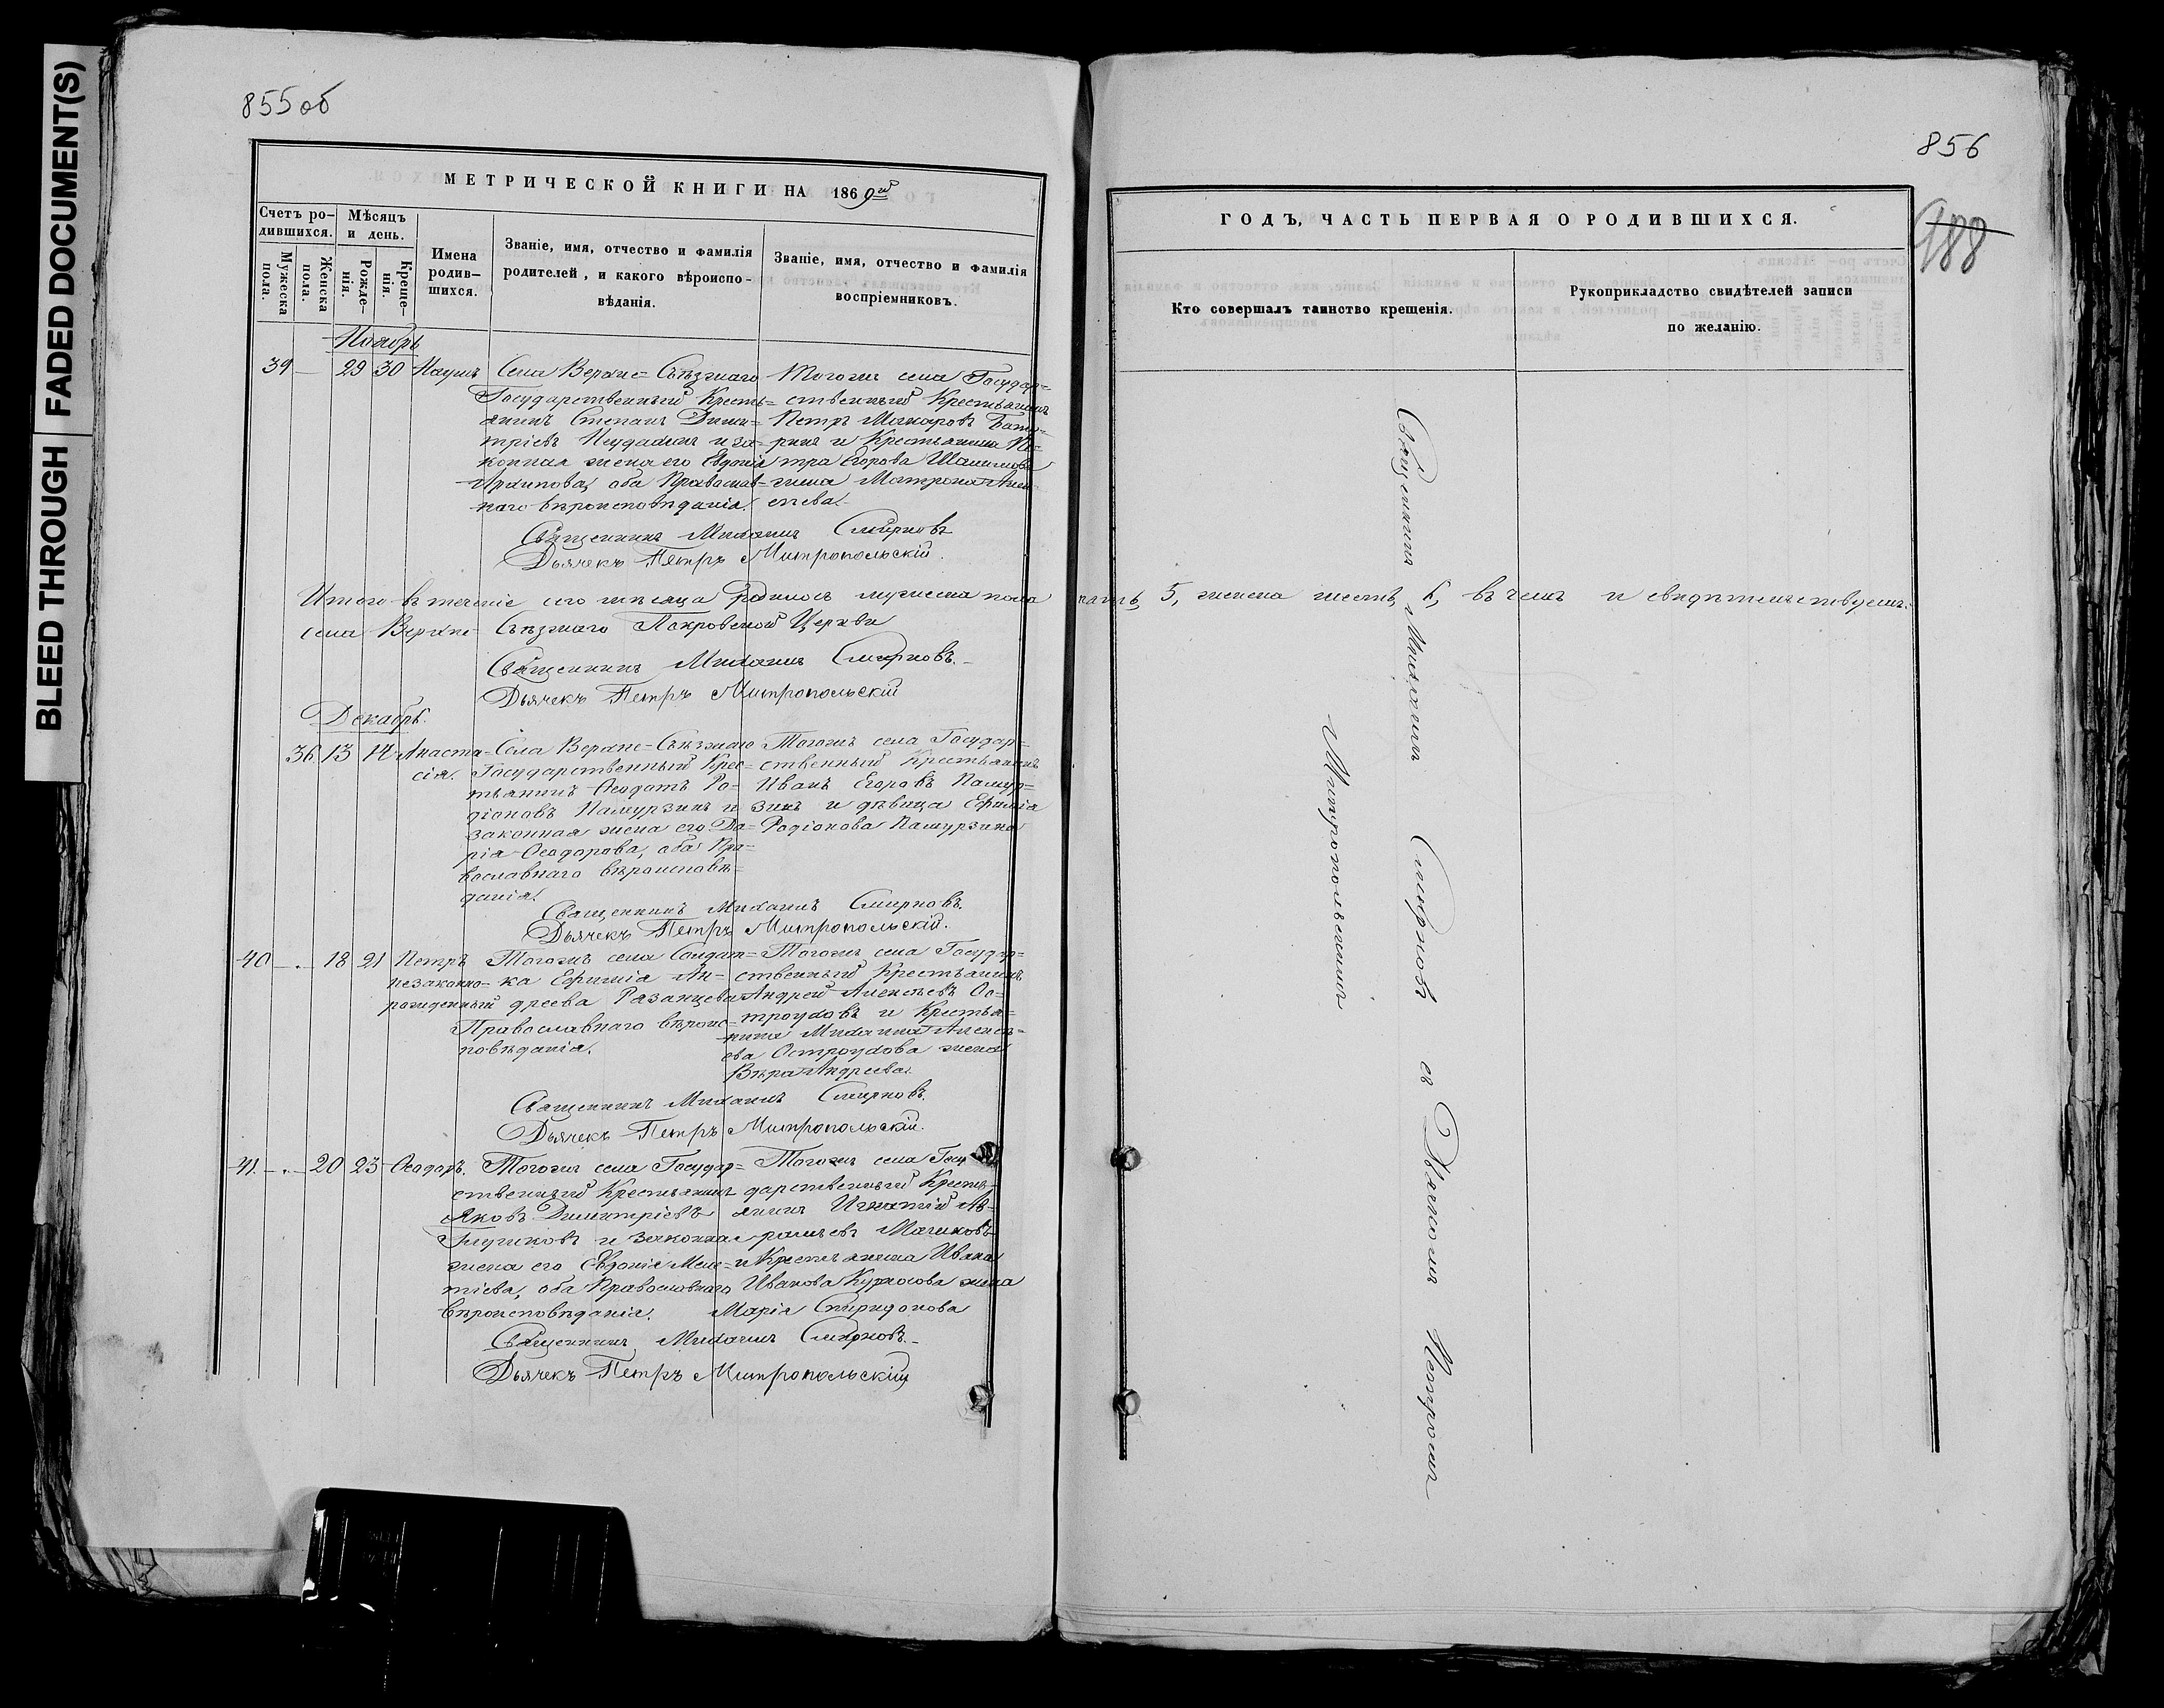 BLEED THROUGH
FADED DOCUMENT(S)
855 об
МЕТРИЧЕСКОЙ КНИГИ НА 1869ый
Счетъ ро-
дившихся.
Мужеска
пола.
Женска
пола.
Мѣсяцъ
и день.
Рожде-
нія.
Креще-
нія.
Имена
родив-
шихся.
Званіе, имя, отчество и фамилія
родителей, и какого вѣроиспо-
вѣданія.
Званіе, имя, отчество и фамилія
воспріемниковъ.
Ноябрь
39 — 29 30 Наумъ
Села Верхне=Съѣзжаго
Государственный Кресть=
янинъ Степанъ Дими=
тріевъ и за=
конная жена его Евдокія
Архипова, оба Православ=
наго вѣроисповѣданія.
Тогожъ села Государ=
ственный Крестьянинъ
Петръ Макаровъ
и Крестьянина Пе=
тра Егорова
жена Матрона Алек=
сѣева.
Священникъ Михаилъ Смирновъ
Дьячекъ Петръ Митропольскій.
Итого въ теченіе сего мѣсяца родилось мужеска пола
села Верхне=Съѣзжаго Покровской Церкви
Священникъ Михаилъ Смирновъ.
Дьячекъ Петръ Митропольскій
Декабрь.
36 13 14 Анаста=
сія.
Села Верхне=Съѣзжаго
Государственный Крес=
тьянинъ Ѳеодотъ Ро=
діоновъ Пашурзинъ и
законная жена его Да=
рія Ѳеодорова, оба Пра=
вославнаго вѣроисповѣ=
данія.
Тогожъ села Государ=
ственный Крестьянинъ
Иванъ Егоровъ Пашур=
зинъ и дѣвица Ефимія
Родіонова Пашурзина
Священникъ Михаилъ Смирновъ.
Дьячекъ Петръ Митропольскій.
40 — . — 18 21 Петръ
незаконно=
рожденный
Тогожъ села Солдат=
ка Ефимія Ан=
дреева Рязанцева
Православнаго вѣроис=
повѣданія.
Тогожъ села Государ=
ственный Крестьянинъ
Андрей Алексѣевъ Ос=
троуховъ и Крестья=
нина Михаила Алексѣ=
ева Остроухова жена
Вѣра Андреева.
Священникъ Михаилъ Смирновъ.
Дьячекъ Петръ Митропольскій.
41. — . — 20 23 Ѳеодоръ.
Тогожъ села Государ=
ственный Крестьянинъ
Яковъ Димитріевъ
и законная
жена его Евдокія Мелен=
тіева, оба Православнаго
вѣроисповѣданія.
Тогожъ села Госу
дарственный Кресть=
янинъ Игнатій Ав=
рамьевъ
и Крестьянина Ивана
Иванова Курносова жена
Марія Спиридонова
Священникъ Михаилъ Смирновъ.
Дьячекъ Петръ Митропольскій
856
988
ГОДЪ, ЧАСТЬ ПЕРВАЯ О РОДИВШИХСЯ.
Кто совершалъ таинство крещенія.
Рукоприкладство свидѣтелей записи
по желанію.
пять, 5, женска шесть, 6, въ чемъ и свидѣтельствуемъ:
Священникъ Михаилъ Смирновъ съ Дьячкомъ Петромъ
Митропольскимъ